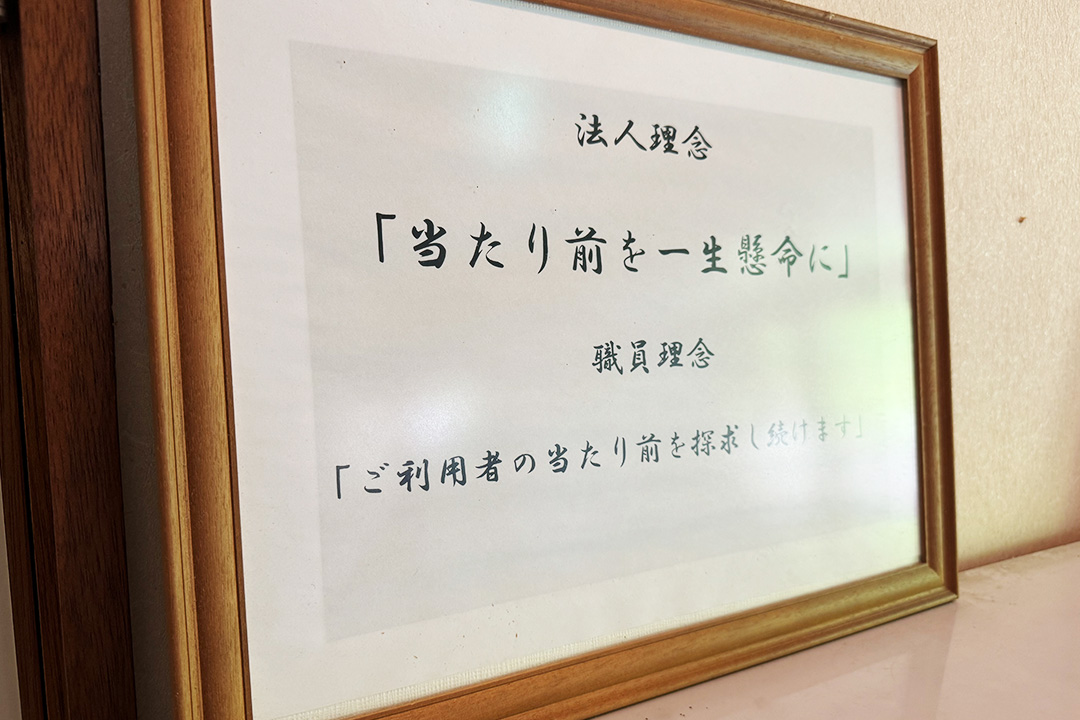 法人理念
「当たり前を一生懸命に」
職員理念
「ご利用者の当たり前を探求し続けます」